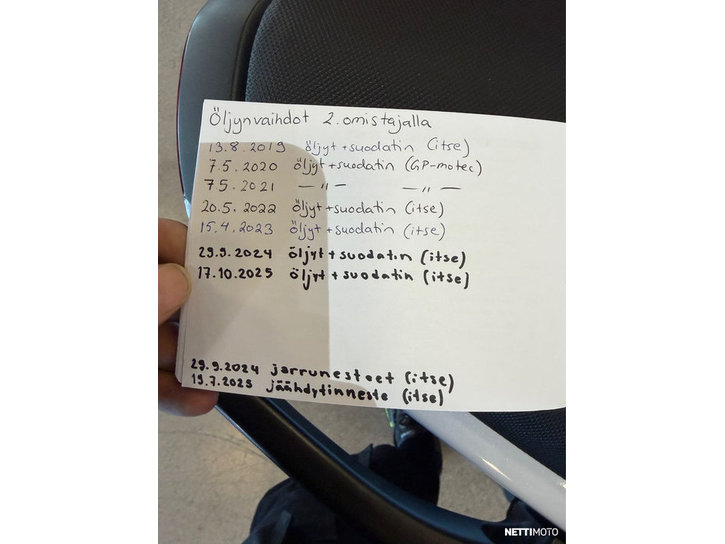 Öljynvaihdot 2. omistajalla
13.8.2019 öljyt + suodatin (itse)
7.5.2020 öljyt + suodatin (GP-motec)
7.5.2021 — " — — " —
20.5.2022 öljyt + suodatin (itse)
15.4.2023 öljyt + suodatin (itse)
29.9.2024 öljyt + suodatin (itse)
17.10.2025 öljyt + suodatin (itse)
29.9.2024 jarrunesteet (itse)
19.7.2025 jäähdytinneste (itse)
NETTIMOTO